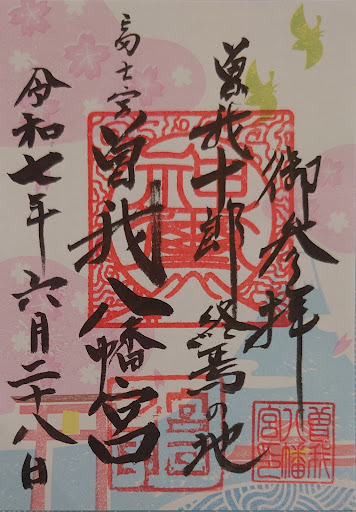 御参拝
曽我十郎
終焉の地
富士宮
曽我八幡宮
令和七年六月二十八日
曽我
八幡
宮印